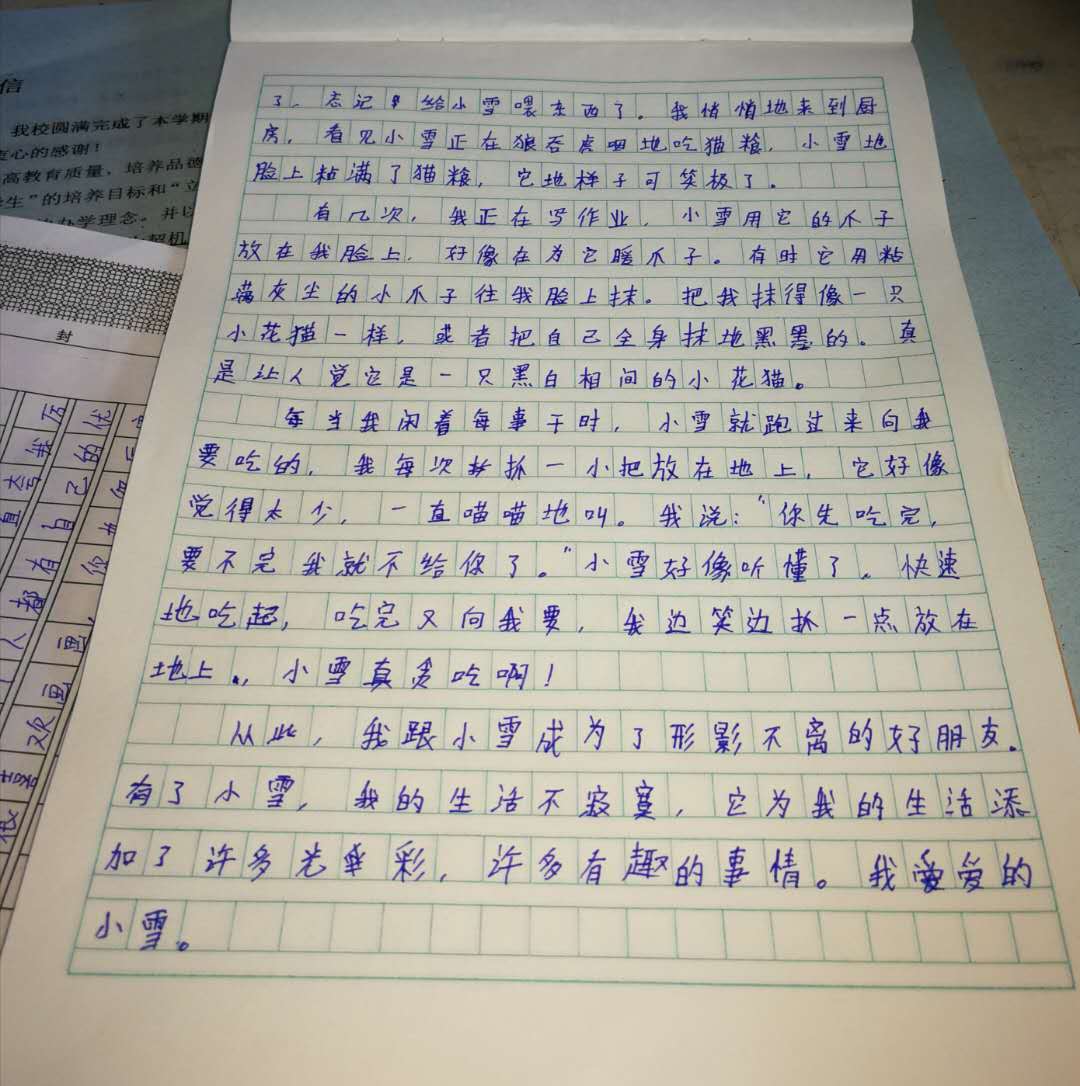 了，忘记给小雪喂东西了。我悄悄地来到厨
房，看见小雪正在狼吞虎咽地吃猫粮，小雪地
脸上粘满了猫粮，它地样子可笑极了。
有几次，我正在写作业，小雪用它的爪子
放在我脸上，好像在为它暖爪子。有时它用粘
满灰尘的小爪子往我脸上抹。把我抹得像一只
小花猫一样，或者把自己全身抹地黑墨的。真
是让人觉它是一只黑白相间的小花猫。
每当我闲着每事干时，小雪就跑过来向我
要吃的，我每次抓一小把放在地上，它好像
觉得太少，一直喵喵地叫。我说：“你先吃完，
要不完我就不给你了。”小雪好像听懂了。快速
地吃起，吃完又向我要，我边笑边抓一点放在
地上，小雪真贪吃啊！
从此，我跟小雪成为了形影不离的好朋友。
有了小雪，我的生活不寂寞，它为我的生活添
加了许多光彩，许多有趣的事情。我爱爱的
小雪。
信
我校圆满完成了本学期
心的感谢！
高教育质量，培养品德
生”的培养目标和“立
办学理念。并以
封